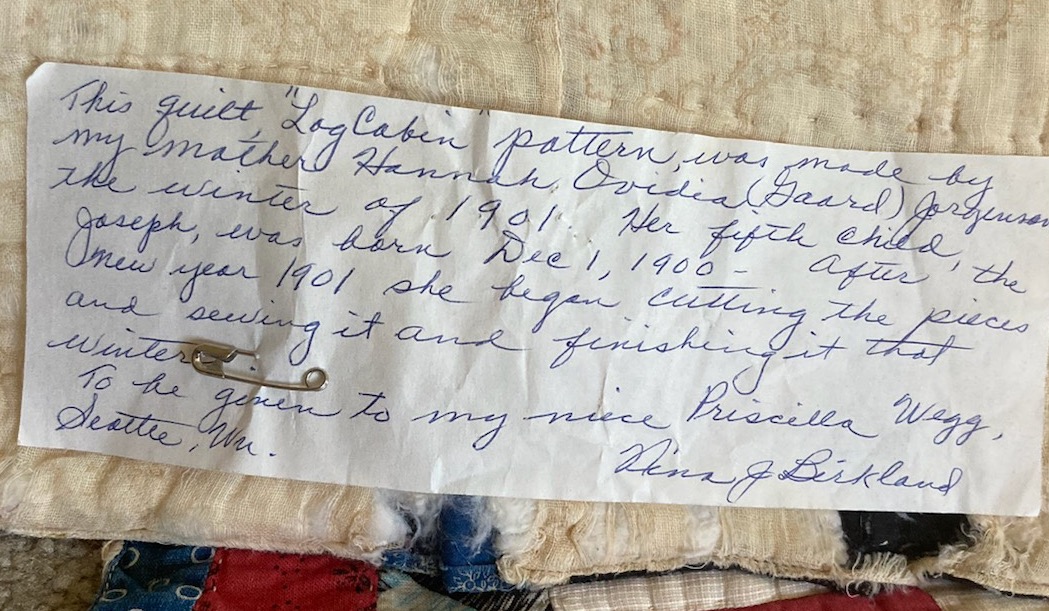 This quilt, "Log Cabin" pattern, was made by
my mother Hannah Ovidia (Gaard) Jorgenson
the winter of 1901. Her fifth child,
Joseph, was born Dec 1, 1900 - After the
new year 1901 she began cutting the pieces
and sewing it and finishing it that
winter.
To be given to my niece Priscilla Wegg,
Seattle, Wn.
Nina J Birkland